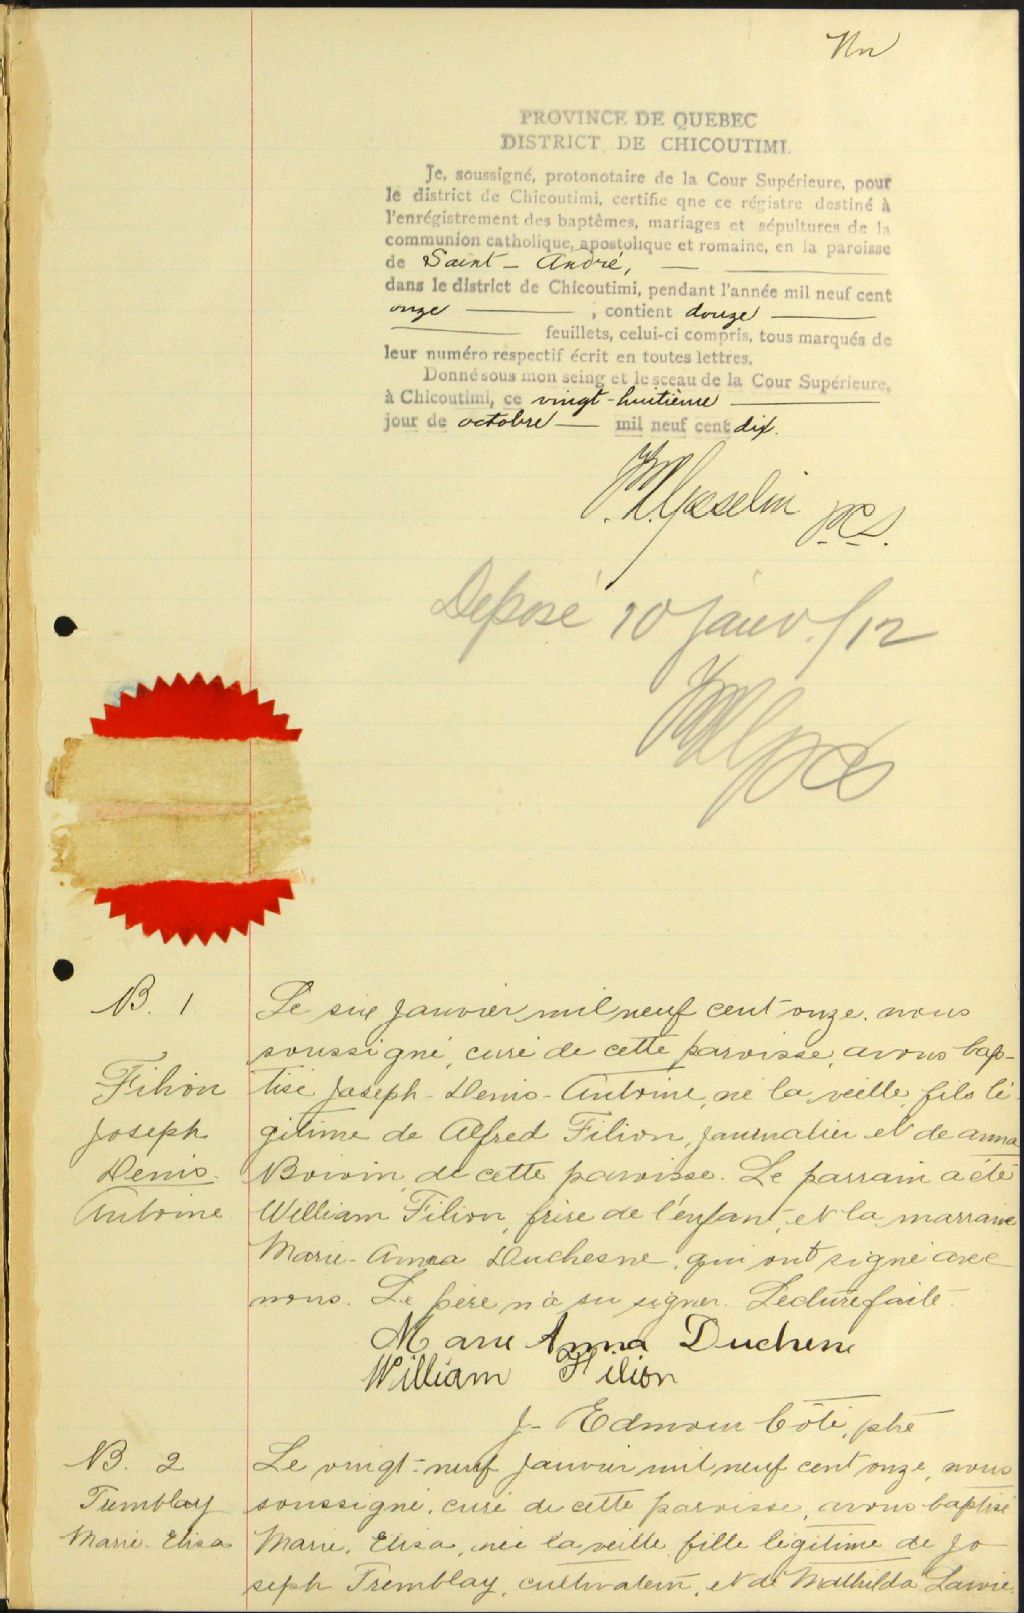 Un
PROVINCE DE QUEBEC
DISTRICT DE CHICOUTIMI.
Je, soussigné, protonotaire de la Cour Supérieure, pour
le district de Chicoutimi, certifie qne ce régistre destiné à
l'enrégistrement des baptêmes, mariages et sépultures de la
communion catholique, apostolique et romaine, en la paroisse
de Saint-André,
dans le district de Chicoutimi, pendant l'année mil neuf cent
onze ; contient douze
feuillets, celui-ci compris, tous marqués de
leur numéro respectif écrit en toutes lettres.
Donné sous mon seing et le sceau de la Cour Supérieure,
à Chicoutimi, ce vingt-huitième
jour de octobre mil neuf cent dix.
Gosselin p.c.s.
Déposé 10 janv./12
B. 1
Filion
Joseph
Denis.
Antoine
Le six janvier mil neuf cent onze, nous
soussigné, curé de cette paroisse, avons bap-
tisé Joseph-Denis-Antoine, né la veille, fils lé-
gitime de Alfred Filion, journalier et de Anna
Boivin, de cette paroisse. Le parrain a été
William Filion, frère de l'enfant, et la marraine
Marie-Anna Duchesne, qui ont signé avec
nous. Le père n'a su signer. Lecture faite.
Marie Anna Duchene
William Filion
J- Edmour Côté, ptre
B. 2
Tremblay
Marie-Elisa
Le vingt-neuf janvier mil neuf cent onze, nous
soussigné, curé de cette paroisse, avons baptisé
Marie, Elisa, née la veille, fille légitime de Jo
seph Tremblay, cultivateur, et de Mathilda Lavoie